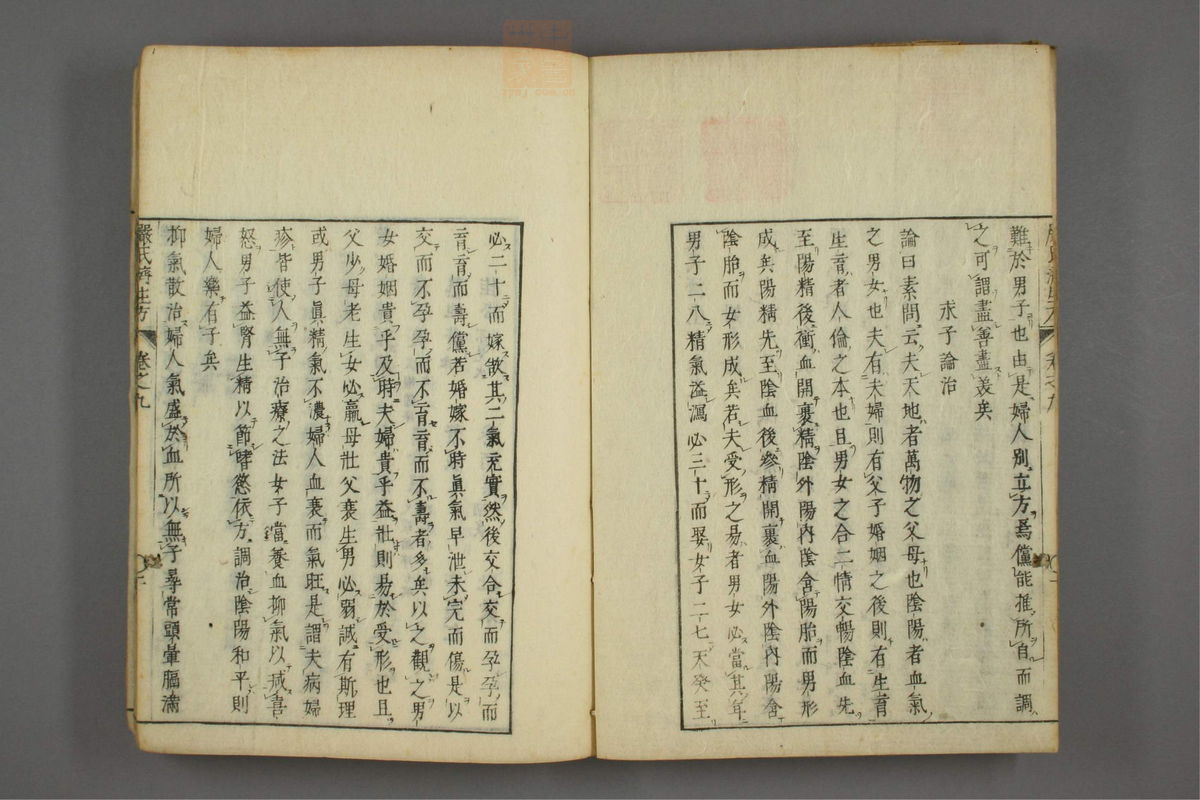 難於男子也由是婦人別立方焉儻能推所自而調
之可謂盡善盡美矣
求子論治
論曰素問云夫天地者萬物之父母也陰陽者血氣
之男女也夫有夫婦則有父子婚姻之後則有生育
生育者人倫之本也且男女之合二情交暢陰血先
至陽精後衝血開裹精陰外陽内陰含陽胎而男形
成矣陽精先至陰血後參精開裹血陽外陰内陽含
陰胎而女形成矣若夫受形之易者男女必當其年
男子二八精氣溢瀉必三十而娶女子二七天癸至
必二十而嫁欲其二氣充實然後交合交而孕孕而
育育而壽儻若婚嫁不時眞氣早泄未完而傷是以
交而不孕孕而不育育而不壽者多矣以之觀之男
女婚姻貴乎及時夫婦貴乎益壯則易於受形也且
父少母老生女必羸母壯父衰生男必弱誠有斯理
或男子眞精氣不濃婦人血衰而氣旺是謂夫病婦
疹皆使人無子治療之法女子當養血抑氣以减喜
怒男子益腎生精以節嗜慾依方調治陰陽和平則
婦人樂有子矣
抑氣散治婦人氣盛於血所以無子尋常頭暈膈滿
嚴氏濟生方 卷之九 二